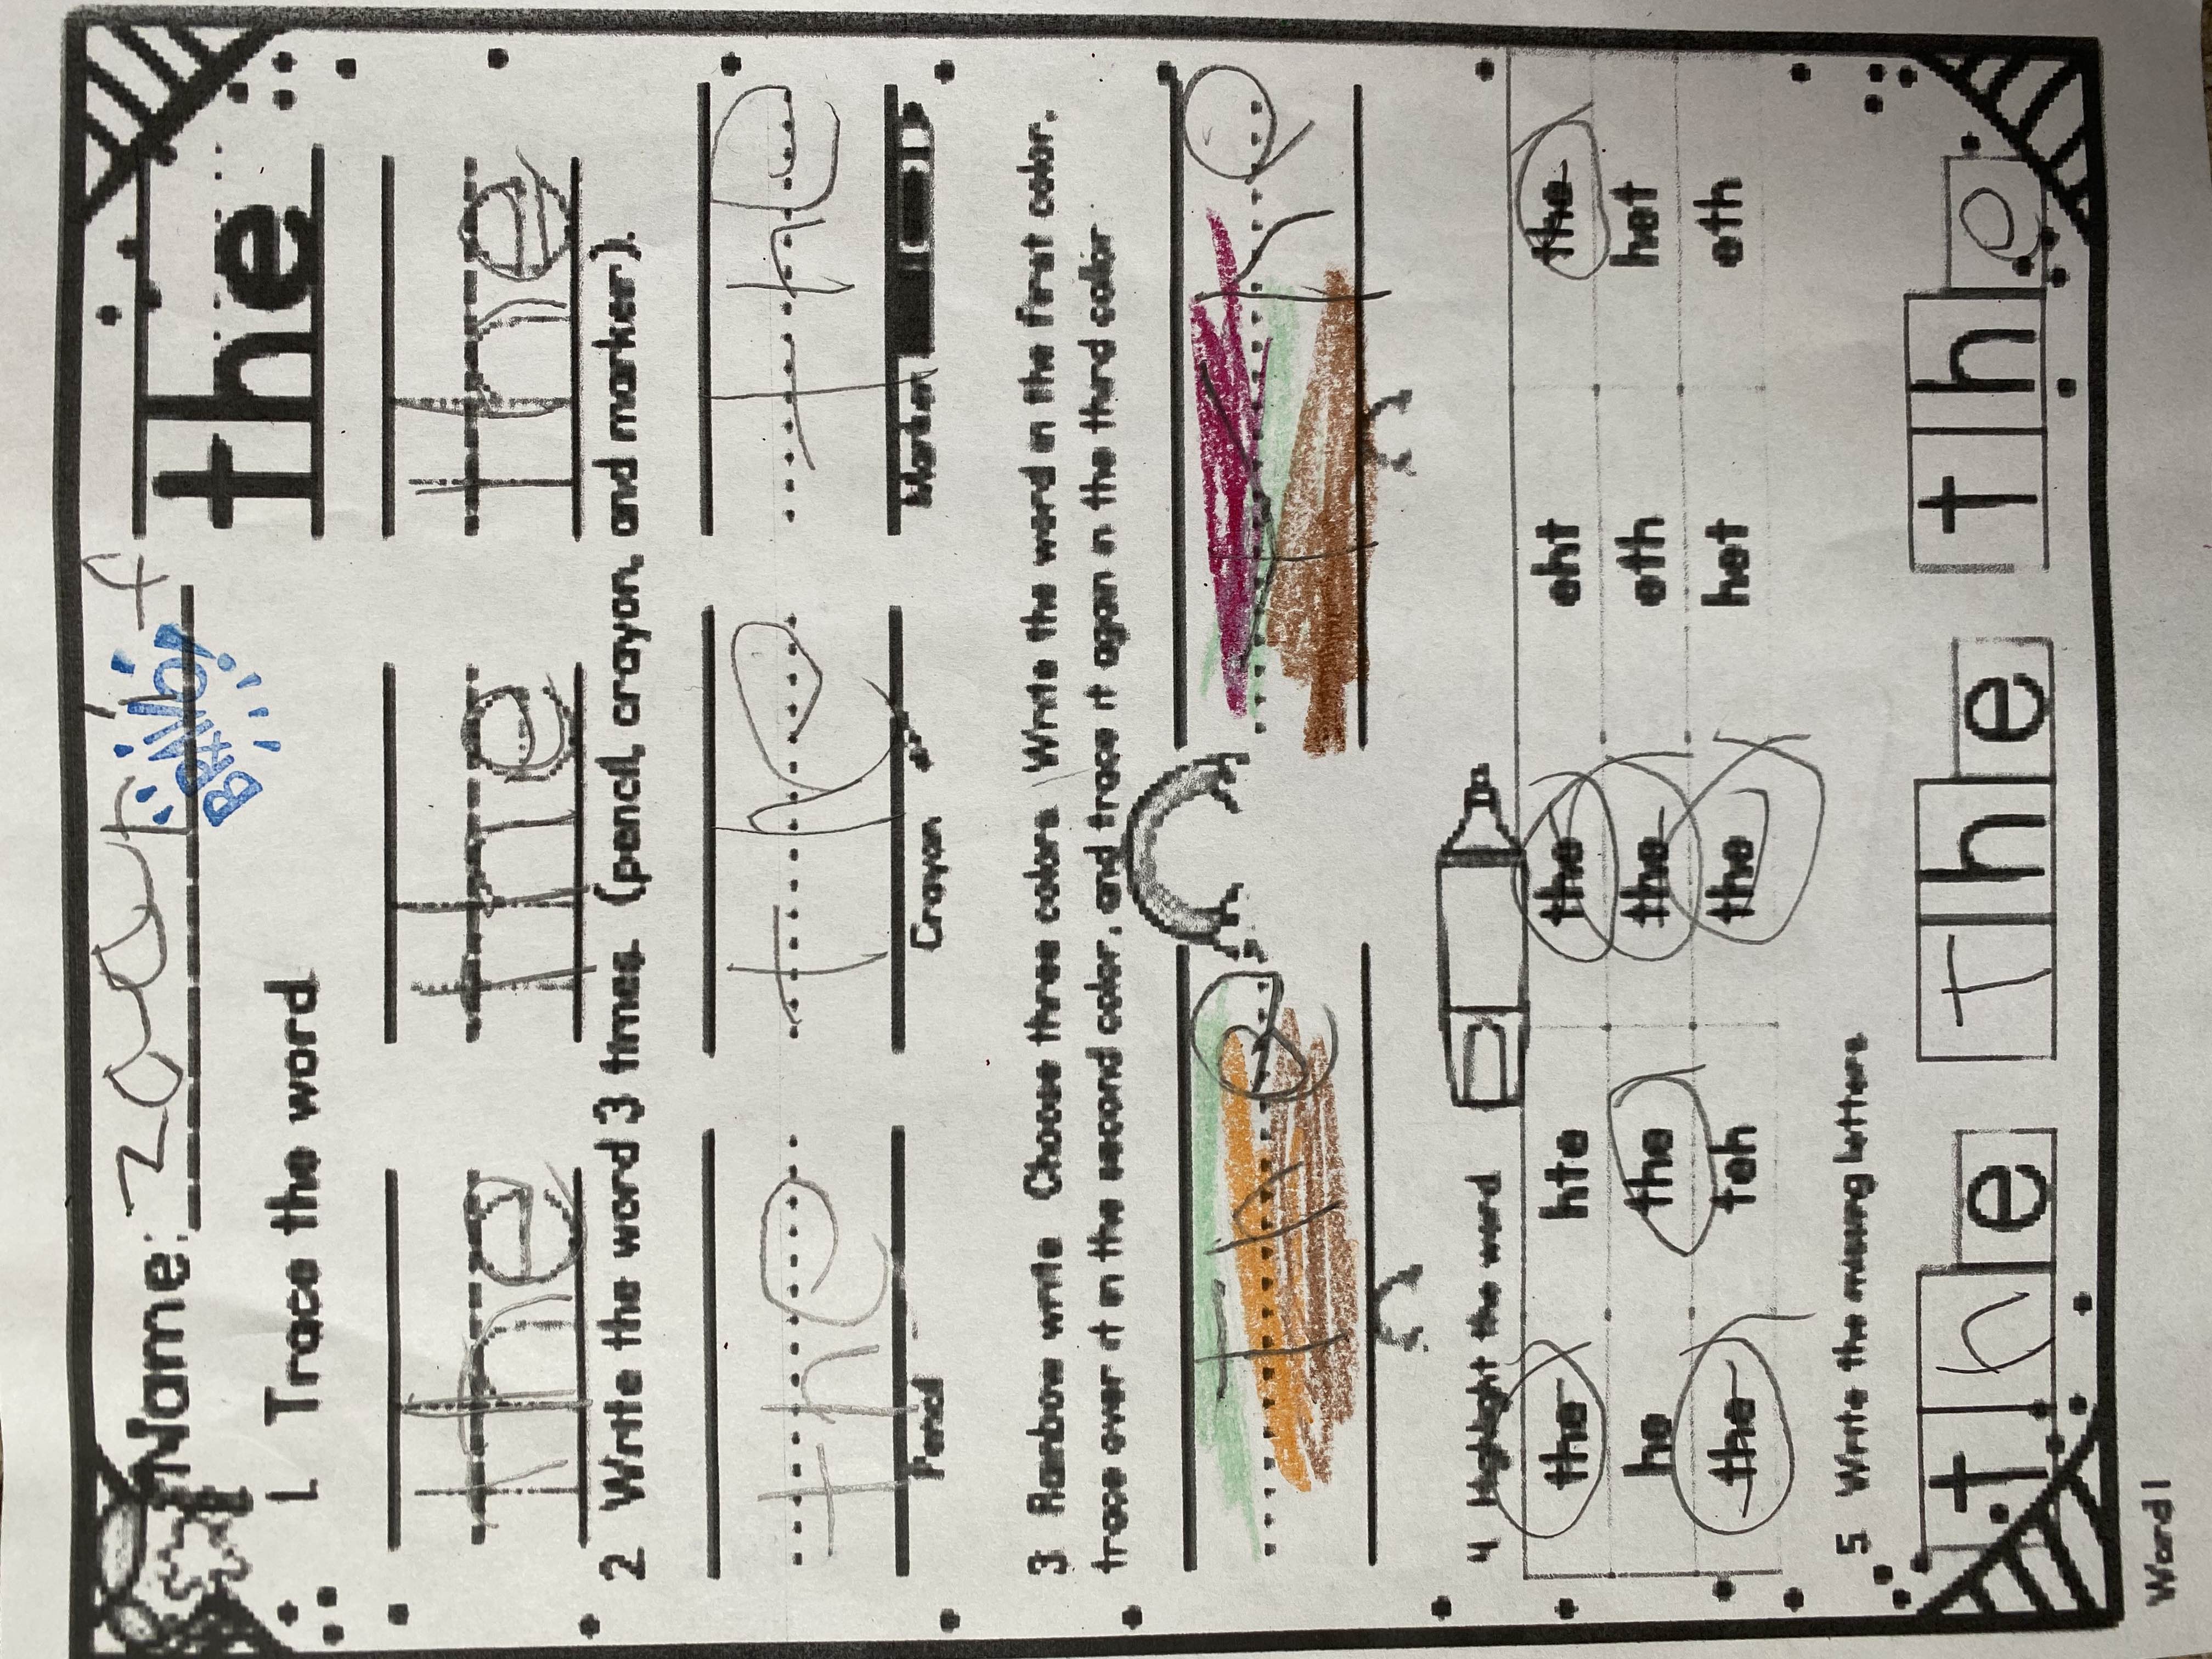 Name:
BRAVO!
the
1. Trace the word
the the the
2 Write the word 3 times. (pencil, crayon, and marker).
the the the
Pencil Crayon Marker
3 Rainbow write Choose three colors Write the word in the first color,
trace over it in the second color, and trace it again in the third collor
the the
4 Highlight the word
the hte the eht the
he the the eth het
the teh the het eth
5 Write the missing letters
the The the
Word 1